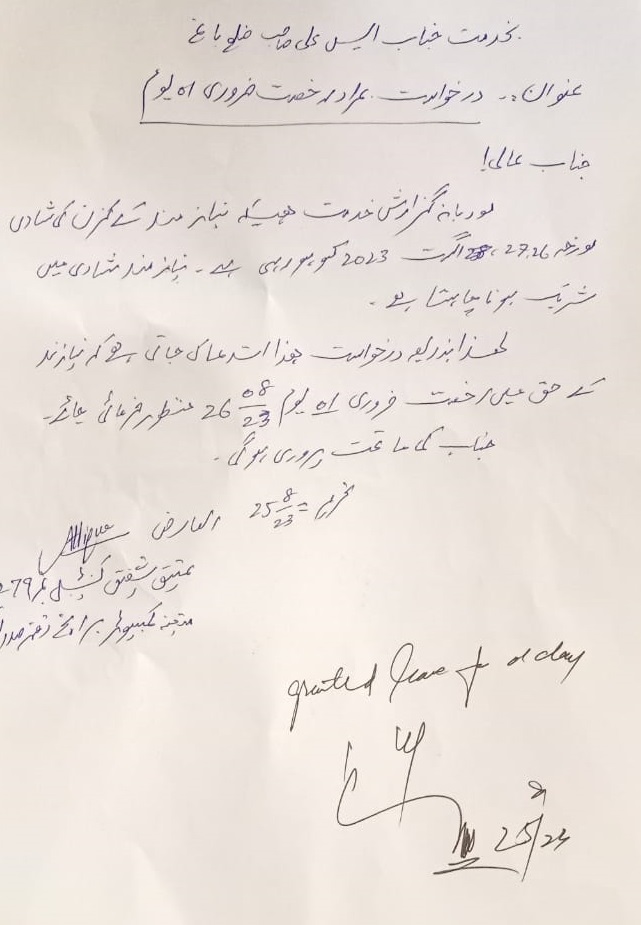 بخدمت جناب ایس پی صاحب ضلع باغ
عنوان:۔ درخواست بمراد رخصت ضروری 01 یوم
جناب عالی!
مودبانہ گزارش خدمت ھیکہ نیازمند کے کزن کی شادی
مورخہ 27،26، اگست 2023 کو ہورہی ہے۔ نیازمند شادی میں
شریک ہونا چاہتا ہے۔
لھذا بذریعہ درخواست ھذا استدعا کی جاتی ہے کہ نیازمند
کے حق میں رخصت ضروری 01 یوم 26 08/23 منظور فرمائی جائے۔
جناب کی ماتحت پروری ہوگی۔
تحریر = 25 8/23 العارض
عتیق شفیق کنسٹیبل نمبر 79
متعینہ کمپیوٹر برانچ دفتر
granted leave for 01 day
25/8/23